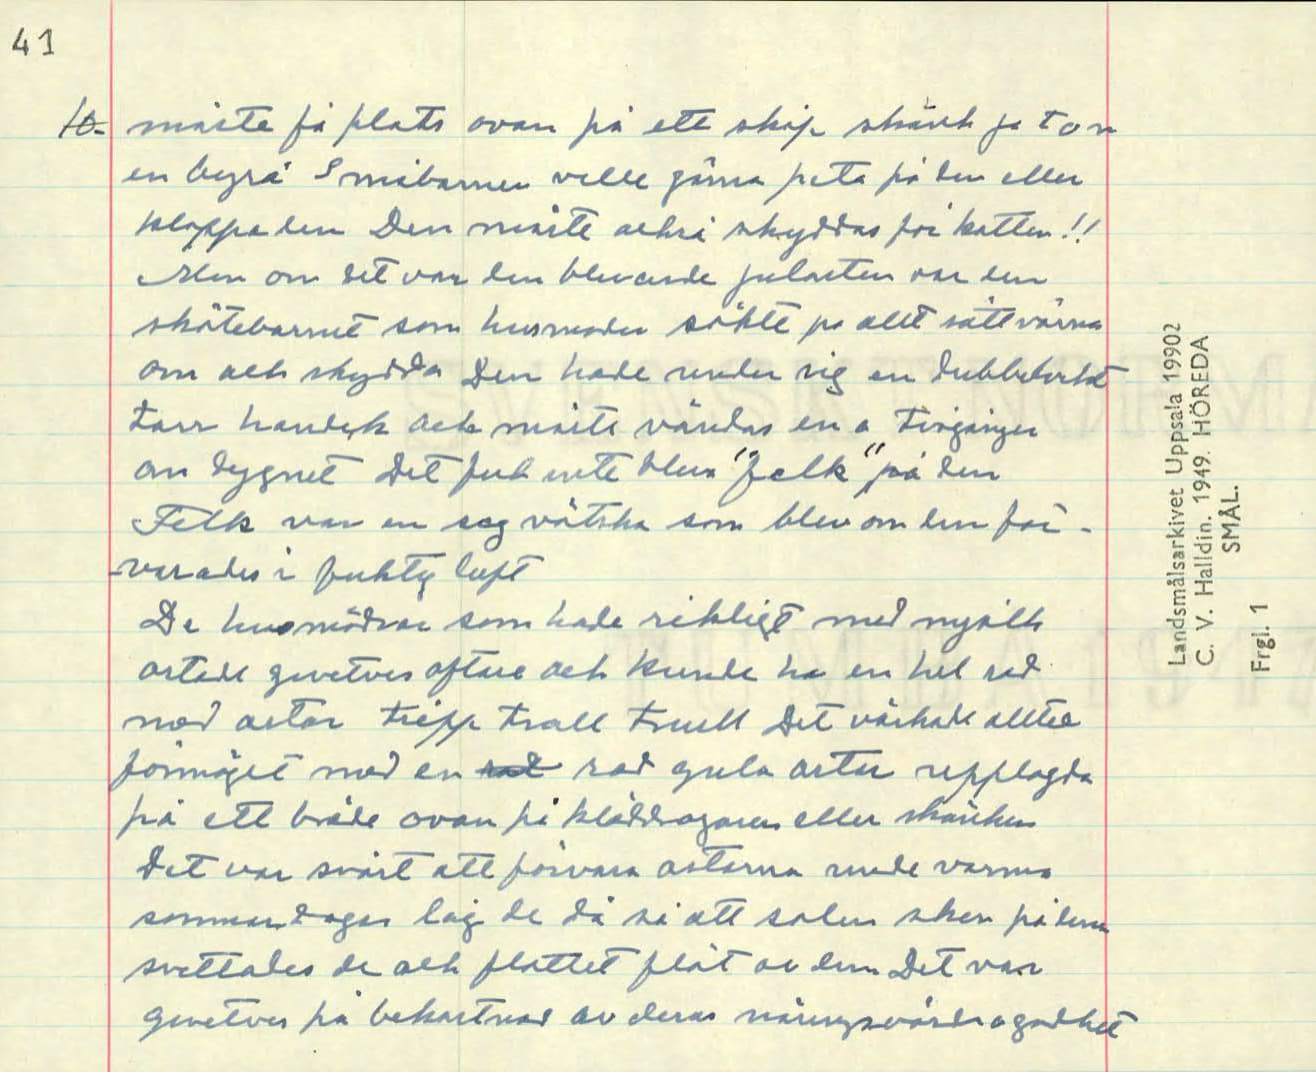 41
10. måste få plats ovan på ett skåp skänk ja t o m
en byrå Småbarnen ville gärna peta på den eller
klappa den Den måste också skyddas för katten!!
Men om det var den blivande julosten var den
skötebarnet som husmoder sökte på allt sätt värna
om och skydda Den hade under sig en dubbelvikt
torr handuk och måste vändas en a två gånger
om dygnet Det fick inte bliva "felk" på den
Felk var en seg vätska som blev om den för-
-varades i fuktig luft
De husmödrar som hade rikligt med mjölk
ostade givetvis oftare och kunde ha en hel rad
med ostar tripp trall trull Det värkade alltid
förmöget med en rad gula ostar upplagda
på ett bräde ovan på kläddragaren eller skänken
Det var svårt att förvara ostarna unde varma
sommardagar låg de då så att solen sken på dem
svettades de och flottet flöt av dem Det var
givetvis på bekostnad av deras näringsvärde o godhet
Landsmålsarkivet Uppsala 19902
C. V. Halldin. 1949. HÖREDA
SMÅL.
Frgl. 1